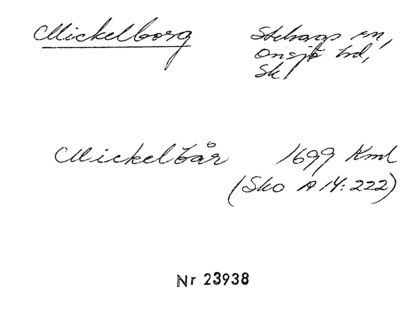 Mickelborg Stehags sn,
Onsjö hd,
Sk
Mickelbår 1699 Kml
(Sko A 14:222)
Nr 23938